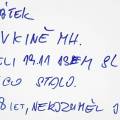 ÁTEK
V KINĚ MH.
ELI 19.11 JSEM SL
CO STALO.
8 LET, NEROZUMĚL